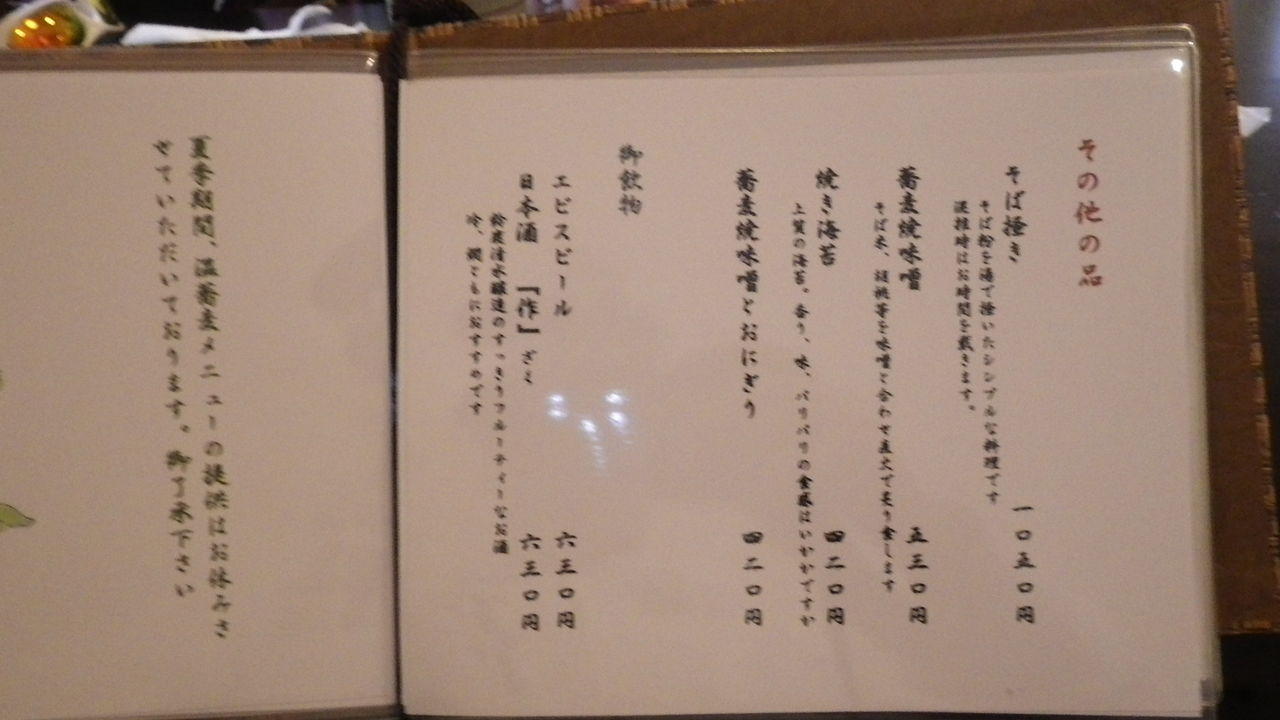 その他の品
そば掻き 一〇五〇円
そば粉を湯で掻いたシンプルな料理です
混雑時はお時間を戴きます。
蕎麦焼味噌 五三〇円
そば米、胡桃等を味噌と合わせ直火で炙り食します
焼き海苔 四二〇円
上質の海苔。香り、味、パリパリの食感はいかがですか
蕎麦焼味噌とおにぎり 四二〇円
御飲物
エビスビール 六三〇円
日本酒 『作』ざく 六三〇円
鈴鹿清水醸造のすっきりフルーティーなお酒
冷、燗ともにおすすめです
夏季期間、温蕎麦メニューの提供はお休みさ
せていただいております。御了承下さい